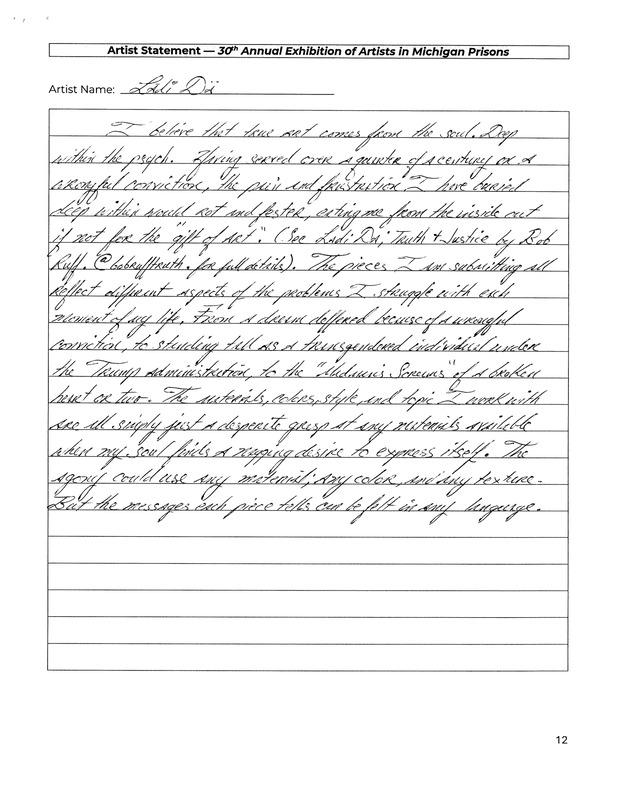 Artist Statement — 30th Annual Exhibition of Artists in Michigan Prisons
Artist Name: Ladi Di
I believe that true art comes from the soul. Deep
within the psych. Having served over a quarter of a century on a
wrongful conviction, the pain and frustration I have buried
deep within would rot and fester, eating me from the inside out
if not for the "gift of Art". (See Ladi Di, Truth & Justice by Bob
Ruff. @bobrufftruth. for full details). The pieces I am submitting all
reflect different aspects of the problems I struggle with each
moment of my life. From a dream deffered because of a wrongful
conviction, to standing tall as a transgendered individual under
the Trump administration, to the Screams" of a broken
heart or two. The materials, colors, style, and topic I work with
are all simply just a desperate grasp at any materials available
when my soul finds a desire to express itself. The
agony could use any material; any color, and any texture.
But the messages each piece tells can be felt in any language.
12